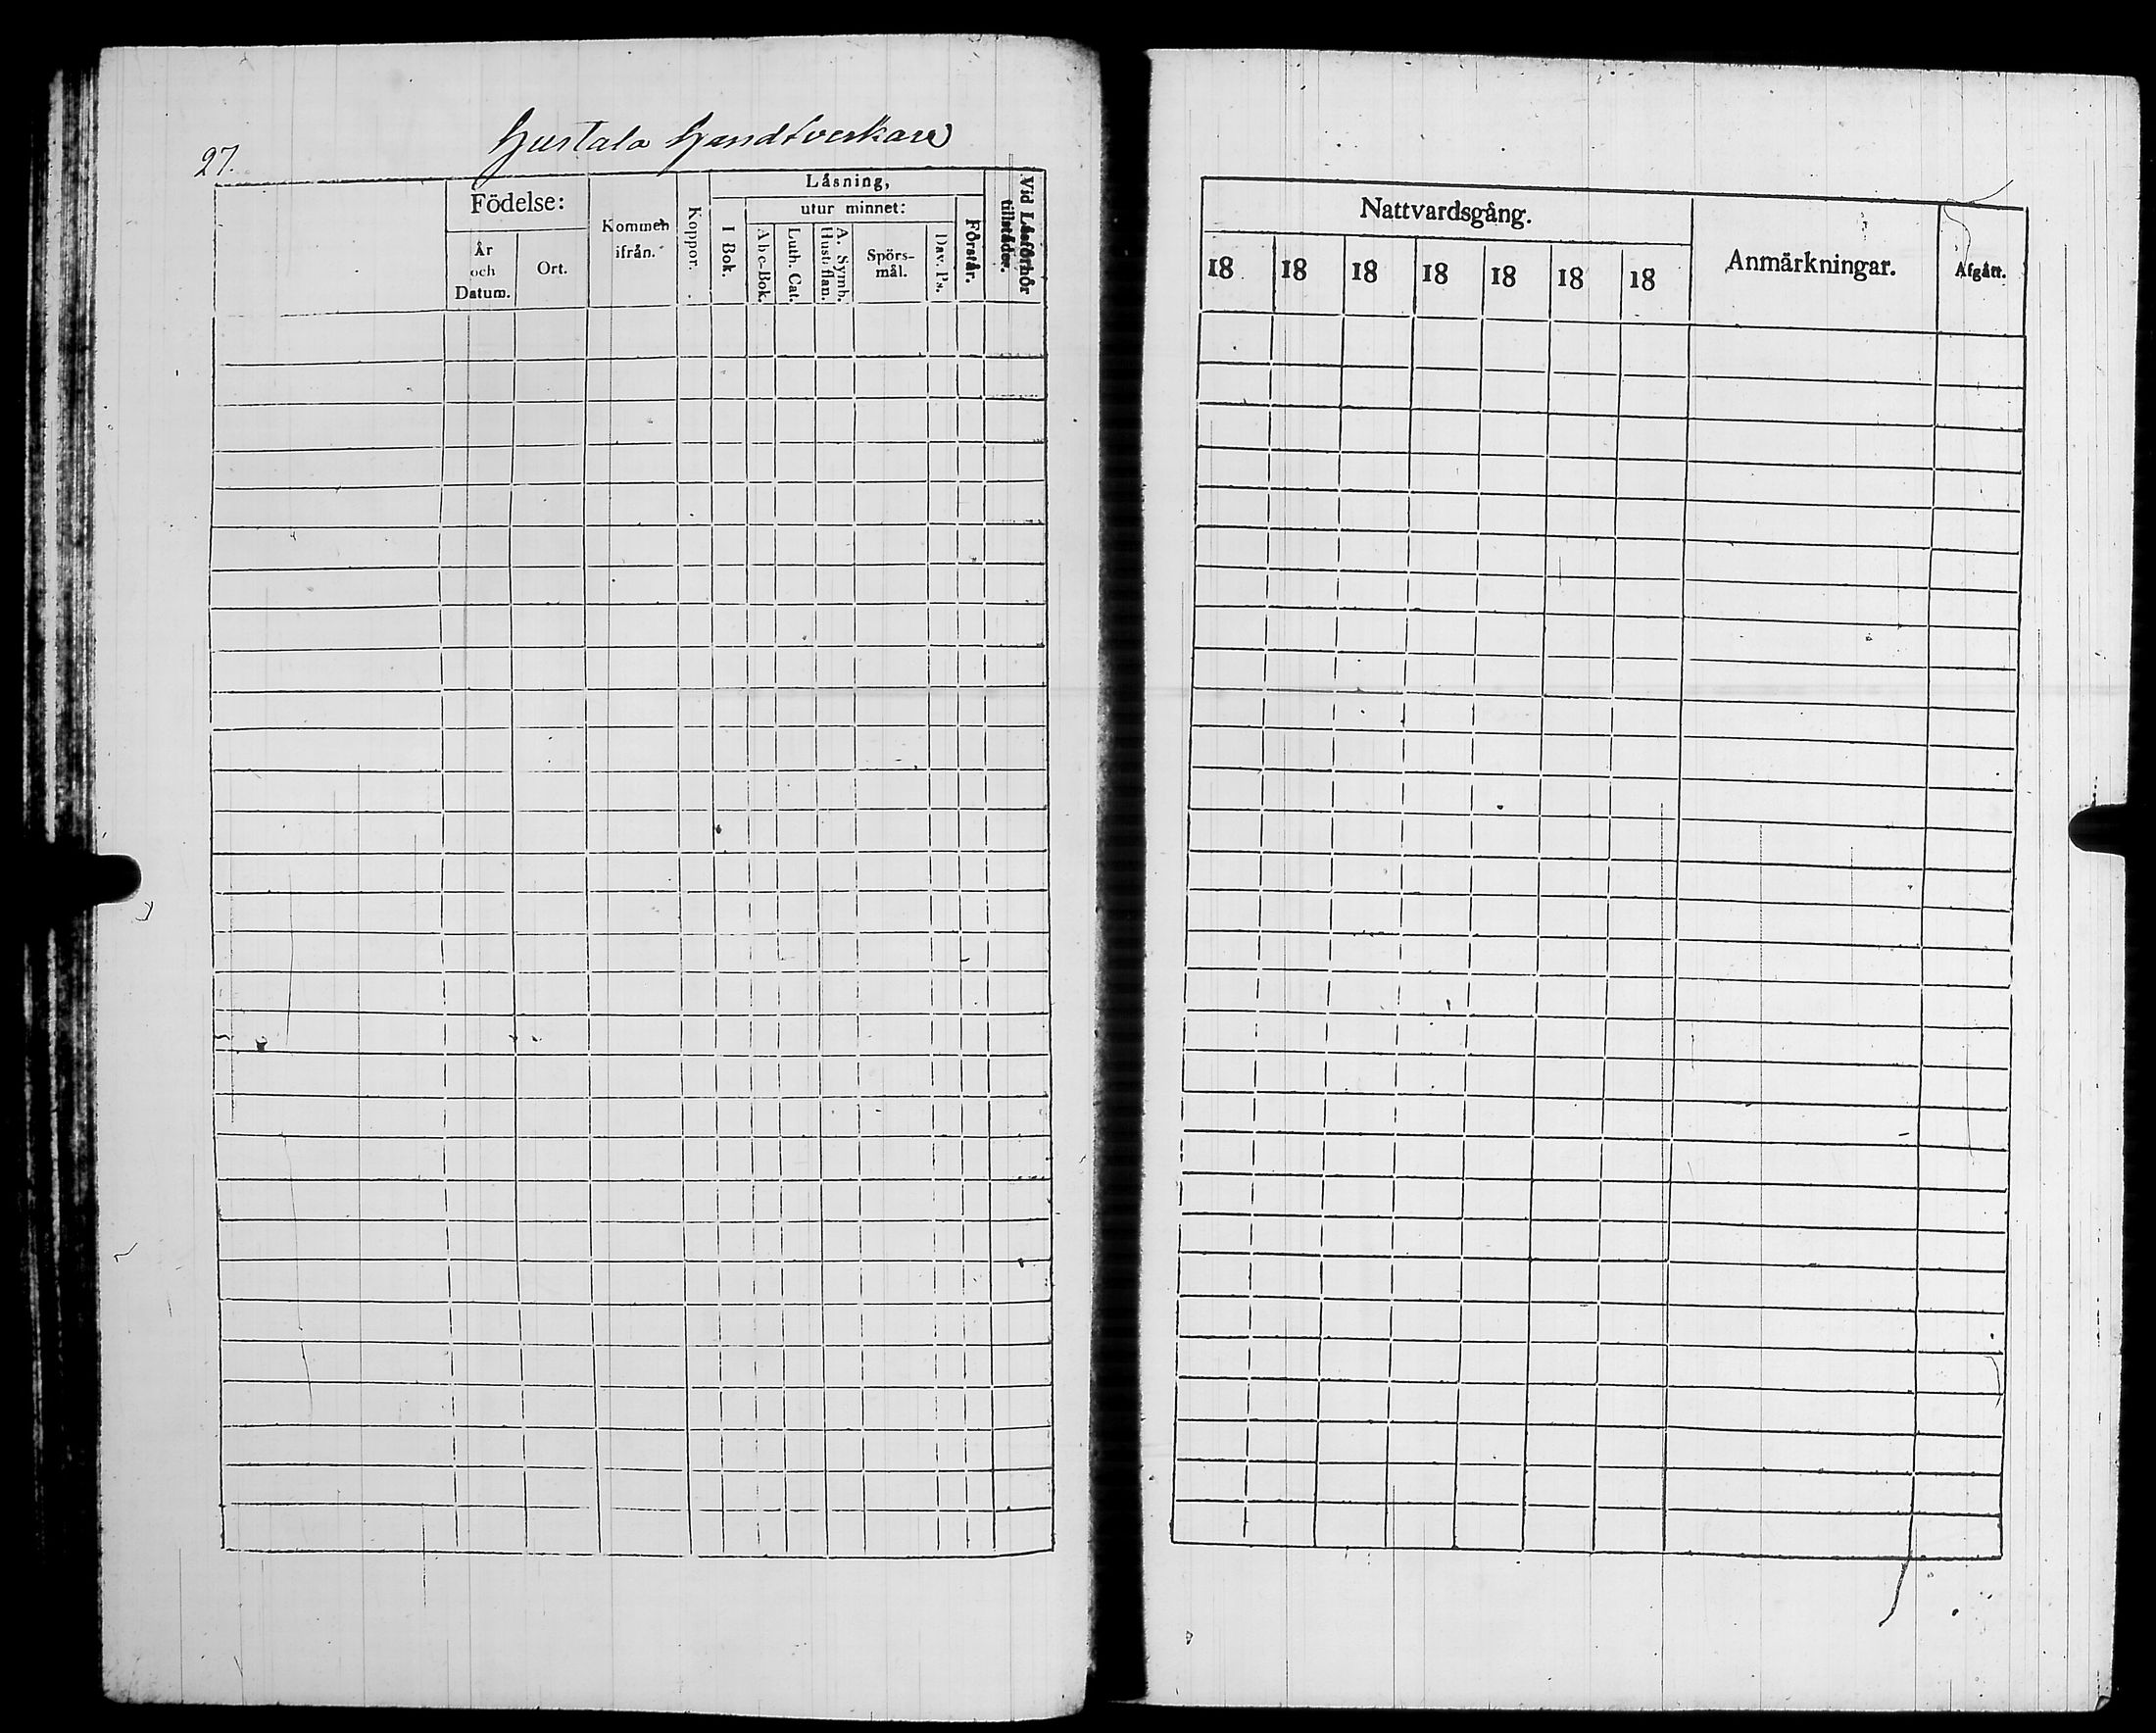 27.
Justala Handtverkare
Födelse:
År
och
Datum.
Ort.
Kommen
ifrån.
Koppor.
Läsning,
I Bok.
utur minnet:
Abc-Bok.
Luth. Cat.
A. Symb.
Hust. flan.
Spörs-
mål.
Dav. Ps.
Förstår.
Vid Läsförhör
tillstädes.
Nattvardsgång.
18 18 18 18 18 18 18
Anmärkningar.
Afgått.